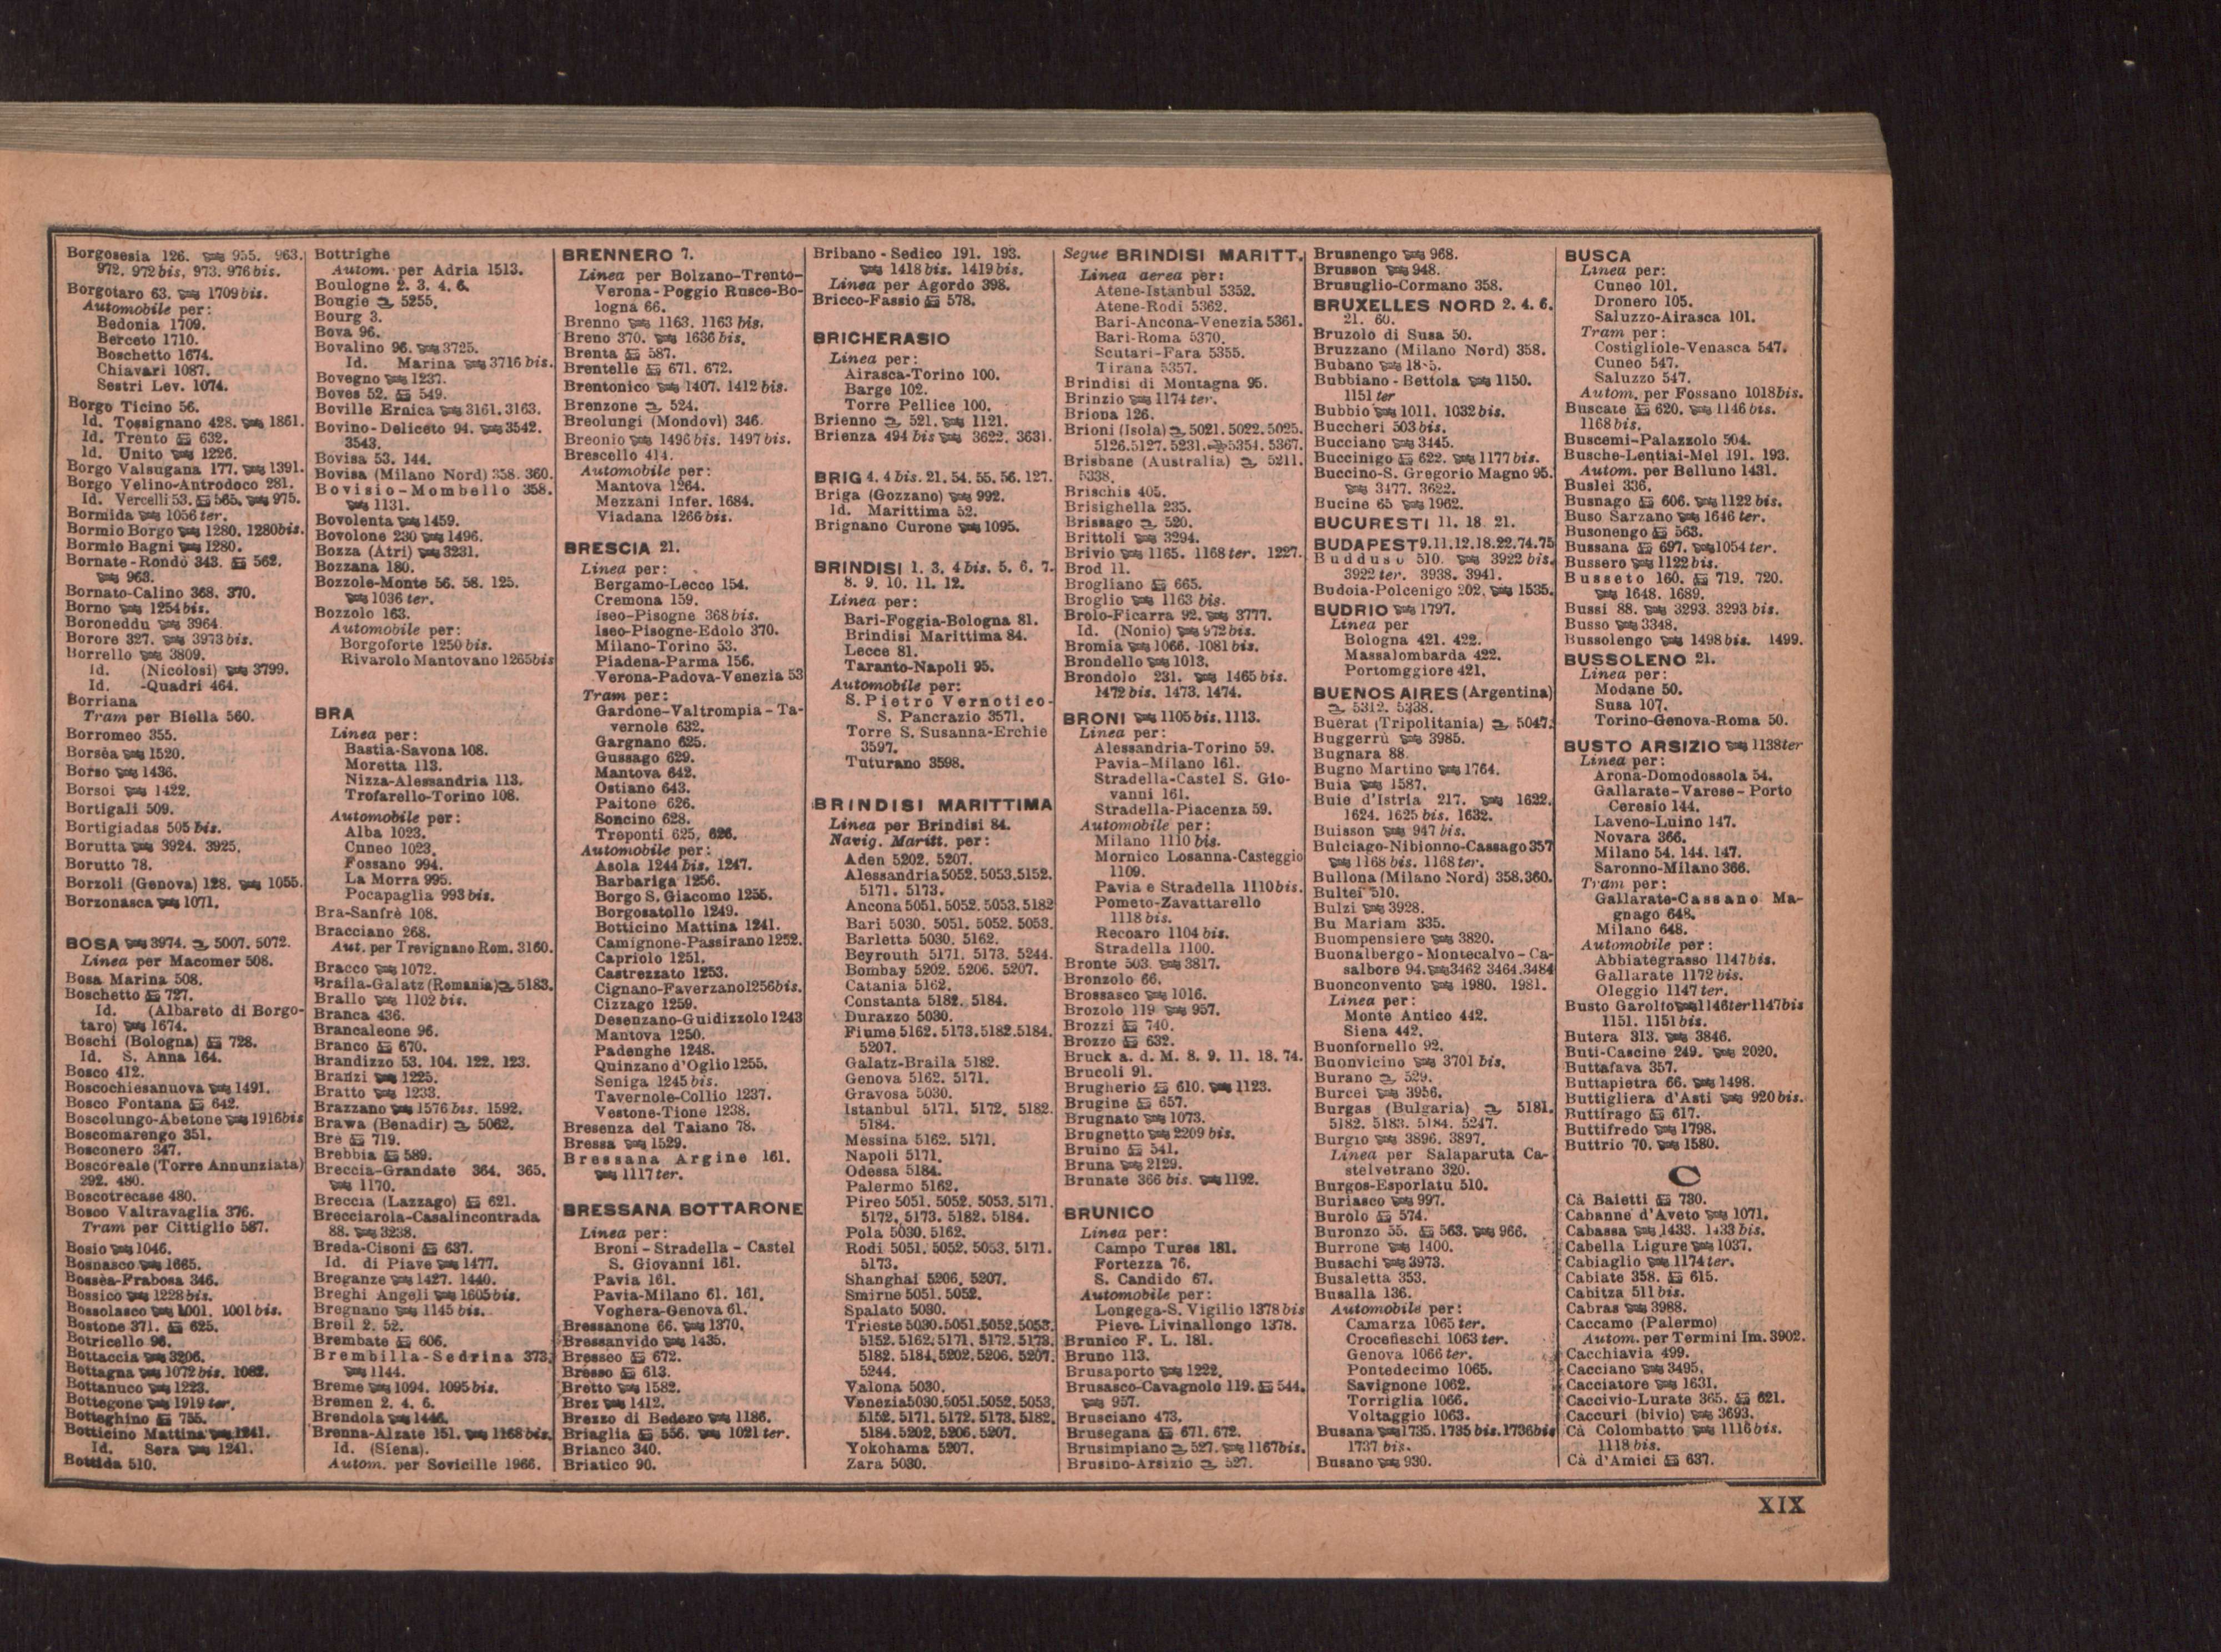 Borgosesia 126. 955. 963.
972. 972 bis, 973. 976 bis.
Borgotaro 63. 1709 bis.
Automobile per:
Bedonia 1709.
Berceto 1710.
Boschetto 1674.
Chiavari 1087.
Sestri Lev. 1074.
Borgo Ticino 56.
Id. Tossignano 428. 1861.
Id. Trento 632.
Id. Unito 1226.
Borgo Valsugana 177. 1391.
Borgo Velino-Antrodoco 281.
Id. Vercelli 53. 565. 975.
Bormida 1056 ter.
Bormio Borgo 1280. 1280bis.
Bormio Bagni 1280.
Bornate-Rondò 343. 562.
963.
Bornato-Calino 368. 370.
Borno 1254 bis.
Boroneddu 3964.
Borore 327. 3973 bis.
Borrello 3809.
Id. (Nicolosi) 3799.
Id. -Quadri 464.
Borriana
Tram per Biella 560.
Borromeo 355.
Borsèa 1520.
Borso 1436.
Borsoi 1422.
Bortigali 509.
Bortigiadas 505 bis.
Borutta 3924. 3925.
Borutto 78.
Borzoli (Genova) 128. 1055.
Borzonasca 1071.
BOSA 3974. 5007. 5072.
Linea per Macomer 508.
Bosa Marina 508.
Boschetto 727.
Id. (Albareto di Borgo-
taro) 1674.
Boschi (Bologna) 728.
Id. S. Anna 164.
Bosco 412.
Boscochiesanuova 1491.
Bosco Fontana 642.
Boscolungo-Abetone 1916bis
Boscomarengo 351.
Bosconero 347.
Boscoreale (Torre Annunziata)
292. 480.
Boscotrecase 480.
Bosco Valtravaglia 376.
Tram per Cittiglio 587.
Bosio 1046.
Bosnasco 1665.
Bossèa-Frabosa 346.
Bossico 1228 bis.
Bossolasco 1001. 1001 bis.
Bostone 371. 625.
Botricello 96.
Bottaccia 3206.
Bottagna 1072 bis. 1082.
Bottanuco 1223.
Bottegone 1919 ter.
Botteghino 755.
Botticino Mattina 1241.
Id. Sera 1241.
Bottida 510.
Bottrighe
Autom. per Adria 1513.
Boulogne 2. 3. 4. 6.
Bougie 5255.
Bourg 3.
Bova 96.
Bovalino 96. 3725.
Id. Marina 3716 bis.
Bovegno 1237.
Boves 52. 549.
Boville Eraica 3161. 3163.
Bovino-Deliceto 94. 3542.
3543.
Bovisa 53. 144.
Bovisa (Milano Nord) 358. 360.
Bovisio-Mombello 358.
1131.
Bovolenta 1459.
Bovolone 230 1496.
Bozza (Atri) 3231.
Bozzana 180.
Bozzole-Monte 56. 58. 125.
1036 ter.
Bozzolo 163.
Automobile per:
Borgoforte 1250 bis.
Rivarolo Mantovano 1265bis
BRA
Linea per:
Bastia-Savona 108.
Moretta 113.
Nizza-Alessandria 113.
Trofarello-Torino 108.
Automobile per:
Alba 1023.
Cuneo 1023.
Fossano 994.
La Morra 995.
Pocapaglia 993 bis.
Bra-Sanfrè 108.
Bracciano 268.
Aut. per Trevignano Rom. 3160.
Bracco 1072.
Braila-Galatz (Romania) 5183.
Brallo 1102 bis.
Branca 436.
Brancaleone 96.
Branco 670.
Brandizzo 53. 104. 122. 123.
Branzi 1225.
Bratto 1233.
Brazzano 1576 bis. 1592.
Brawa (Benadir) 5062.
Brè 719.
Brebbia 589.
Breccia-Grandate 364. 365.
1170.
Breccia (Lazzago) 621.
Brecciarola-Casalincontrada
88. 3238.
Breda-Cisoni 637.
Id. di Piave 1477.
Breganze 1427. 1440.
Breghi Angeli 1605bis.
Bregnano 1145 bis.
Breil 2. 52.
Brembate 606.
Brembilla-Sedrina 373.
1144.
Breme 1094. 1095 bis.
Bremen 2. 4. 6.
Brendola 1446.
Brenna-Alzate 151. 1168 bis.
Id. (Siena).
Autom. per Sovicille 1966.
BRENNERO 7.
Linea per Bolzano-Trento-
Verona-Poggio Rusco-Bo-
logna 66.
Brenno 1163. 1163 bis.
Breno 370. 1636 bis.
Brenta 587.
Brentelle 671. 672.
Brentonico 1407. 1412 bis.
Brenzone 524.
Breolungi (Mondovì) 346.
Breonio 1496 bis. 1497 bis.
Brescello 414.
Automobile per:
Mantova 1264.
Mezzani Infer. 1684.
Viadana 1266 bis.
BRESCIA 21.
Linea per:
Bergamo-Lecco 154.
Cremona 159.
Iseo-Pisogne 368 bis.
Iseo-Pisogne-Edolo 370.
Milano-Torino 53.
Piadena-Parma 156.
Verona-Padova-Venezia 53
Tram per:
Gardone-Valtrompia-Ta-
vernole 632.
Gargnano 625.
Gussago 629.
Mantova 642.
Ostiano 643.
Paitone 626.
Soncino 628.
Treponti 625. 626.
Automobile per:
Asola 1244 bis. 1247.
Barbariga 1256.
Borgo S. Giacomo 1255.
Borgosatollo 1249.
Botticino Mattina 1241.
Camignone-Passirano 1252.
Capriolo 1251.
Castrezzato 1253.
Cignano-Faverzano1256bis.
Cizzago 1259.
Desenzano-Guidizzolo 1243
Mantova 1250.
Padenghe 1248.
Quinzano d'Oglio 1255.
Seniga 1245 bis.
Tavernole-Collio 1237.
Vestone-Tione 1238.
Bresenza del Taiano 78.
Bressa 1529.
Bressana Argine 161.
1117 ter.
BRESSANA BOTTARONE
Linea per:
Broni-Stradella-Castel
S. Giovanni 161.
Pavia 161.
Pavia-Milano 61. 161.
Voghera-Genova 61.
Bressanone 66. 1370.
Bressanvido 1435.
Bresseo 672.
Bresso 613.
Bretto 1582.
Brez 1412.
Brezzo di Bedero 1186.
Briaglia 556. 1021 ter.
Brianco 340.
Briatico 90.
Bribano-Sedico 191. 193.
1418 bis. 1419 bis.
Linea per Agordo 398.
Bricco-Fassio 578.
BRICHERASIO
Linea per:
Airasca-Torino 100.
Barge 102.
Torre Pellice 100.
Brienno 521. 1121.
Brienza 494 bis 3622. 3631.
BRIG 4. 4 bis. 21. 54. 55. 56. 127.
Briga (Gozzano) 992.
Id. Marittima 52.
Brignano Curone 1095.
BRINDISI 1. 3. 4 bis. 5. 6. 7.
8. 9. 10. 11. 12.
Linea per:
Bari-Foggia-Bologna 81.
Brindisi Marittima 84.
Lecce 81.
Taranto-Napoli 95.
Automobile per:
S. Pietro Vernotico-
S. Pancrazio 3571.
Torre S. Susanna-Erchie
3597.
Tuturano 3598.
BRINDISI MARITTIMA
Linea per Brindisi 84.
Navig. Maritt. per:
Aden 5202. 5207.
Alessandria 5052. 5053. 5152.
5171. 5173.
Ancona 5051. 5052. 5053. 5182
Bari 5030. 5051. 5052. 5053.
Barletta 5030. 5162.
Beyrouth 5171. 5173. 5244.
Bombay 5202. 5206. 5207.
Catania 5162.
Constanta 5182. 5184.
Durazzo 5030.
Fiume 5162. 5173. 5182. 5184.
5207.
Galatz-Braila 5182.
Genova 5162. 5171.
Gravosa 5030.
Istanbul 5171. 5172. 5182.
5184.
Messina 5162. 5171.
Napoli 5171.
Odessa 5184.
Palermo 5162.
Pireo 5051. 5052. 5053. 5171.
5172. 5173. 5182. 5184.
Pola 5030. 5162.
Rodi 5051. 5052. 5053. 5171.
5173.
Shanghai 5206. 5207.
Smirne 5051. 5052.
Spalato 5030.
Trieste 5030. 5051. 5052. 5053.
5152. 5162. 5171. 5172. 5173.
5182. 5184. 5202. 5206. 5207.
5244.
Valona 5030.
Venezia 5030. 5051. 5052. 5053.
5152. 5171. 5172. 5173. 5182.
5184. 5202. 5206. 5207.
Yokohama 5207.
Zara 5030.
Segue BRINDISI MARITT.
Linea aerea per:
Atene-Istanbul 5352.
Atene-Rodi 5362.
Bari-Ancona-Venezia 5361.
Bari-Roma 5370.
Scutari-Fara 5355.
Tirana 5357.
Brindisi di Montagna 95.
Brinzio 1174 ter.
Briona 126.
Brioni (Isola) 5021. 5022. 5025.
5126. 5127. 5231. 5354. 5367.
Brisbane (Australia) 5211.
5338.
Brischis 405.
Brisighella 235.
Brissago 520.
Brittoli 3294.
Brivio 1165. 1168 ter. 1227.
Brod 11.
Brogliano 665.
Broglio 1163 bis.
Brolo-Ficarra 92. 3777.
Id. (Nonio) 972 bis.
Bromia 1066. 1081 bis.
Brondello 1013.
Brondolo 231. 1465 bis.
1472 bis. 1473. 1474.
BRONI 1105 bis. 1113.
Linea per:
Alessandria-Torino 59.
Pavia-Milano 161.
Stradella-Castel S. Gio-
vanni 161.
Stradella-Piacenza 59.
Automobile per:
Milano 1110 bis.
Mornico Losanna-Casteggio
1109.
Pavia e Stradella 1110bis.
Pometo-Zavattarello
1118 bis.
Recoaro 1104 bis.
Stradella 1100.
Bronte 503. 3817.
Bronzolo 66.
Brossasco 1016.
Brozolo 119 957.
Brozzi 740.
Brozzo 632.
Bruck a. d. M. 8. 9. 11. 18. 74.
Brucoli 91.
Brugherio 610. 1123.
Brugine 657.
Brugnato 1073.
Brugnetto 2209 bis.
Bruino 541.
Bruna 2129.
Brunate 366 bis. 1192.
BRUNICO
Linea per:
Campo Tures 181.
Fortezza 76.
S. Candido 67.
Automobile per:
Longega-S. Vigilio 1378 bis
Pieve Livinallongo 1378.
Brunico F. L. 181.
Bruno 113.
Brusaporto 1222.
Brusasco-Cavagnolo 119. 544.
957.
Brusciano 473.
Brusegana 671. 672.
Brusimpiano 527. 1167bis.
Brusino-Arsizio 527.
Brusnengo 968.
Brusson 948.
Brusuglio-Cormano 358.
BRUXELLES NORD 2. 4. 6.
21. 60.
Bruzolo di Susa 50.
Bruzzano (Milano Nord) 358.
Bubano
Bubbiano-Bettola 1150.
1151 ter
Bubbio 1011. 1032 bis.
Buccheri 503 bis.
Bucciano 3445.
Buccinigo 622. 1177 bis.
Buccino-S. Gregorio Magno 95.
3477. 3622.
Bucine 65 1962.
BUCURESTI 11. 18. 21.
BUDAPEST 9.11.12.18.22.74.75
Budduso 510. 3922 bis.
3922 ter. 3938. 3941.
Budoia-Polcenigo 202. 1535.
BUDRIO 1797.
Linea per
Bologna 421. 422.
Massalombarda 422.
Portomggiore 421.
BUENOS AIRES (Argentina)
5312. 5338.
Buerat (Tripolitania) 5047.
Buggerrù 3985.
Bugnara 88.
Bugno Martino 1764.
Buia 1587.
Buie d'Istria 217. 1622.
1624. 1625 bis. 1632.
Buisson 947 bis.
Bulciago-Nibionno-Cassago 357
1168 bis. 1168 ter.
Bullona (Milano Nord) 358.360.
Bultei 510.
Bulzi 3928.
Bu Mariam 335.
Buompensiere 3820.
Buonalbergo-Montecalvo-Ca-
salbore 94. 3462 3464.3484
Buonconvento 1980. 1981.
Linea per:
Monte Antico 442.
Siena 442.
Buonfornello 92.
Buonvicino 3701 bis.
Burano 529.
Burcei 3956.
Burgas (Bulgaria) 5181.
5182. 5183. 5184. 5247.
Burgio 3896. 3897.
Linea per Salaparuta Ca-
stelvetrano 320.
Burgos-Esporlatu 510.
Buriasco 997.
Burolo 574.
Buronzo 55. 563. 966.
Burrone 1400.
Busachi 3973.
Busaletta 353.
Busalla 136.
Automobile per:
Camarza 1065 ter.
Crocefieschi 1063 ter.
Genova 1066 ter.
Pontedecimo 1065.
Savignone 1062.
Torriglia 1066.
Voltaggio 1063.
Busana 1735. 1735 bis. 1736bis
1737 bis.
Busano 930.
BUSCA
Linea per:
Cuneo 101.
Dronero 105.
Saluzzo-Airasca 101.
Tram per:
Costigliole-Venasca 547.
Cuneo 547.
Saluzzo 547.
Autom. per Fossano 1018bis.
Buscate 620. 1146 bis.
1168 bis.
Buscemi-Palazzolo 504.
Busche-Lentiai-Mel 191. 193.
Autom. per Belluno 1431.
Buslei 336.
Busnago 606. 1122 bis.
Buso Sarzano 1646 ter.
Busonengo 563.
Bussana 697. 1054 ter.
Bussero 1122 bis.
Busseto 160. 719. 720.
1648. 1689.
Bussi 88. 3293. 3293 bis.
Busso 3348.
Bussolengo 1498 bis. 1499.
BUSSOLENO 21.
Linea per:
Modane 50.
Susa 107.
Torino-Genova-Roma 50.
BUSTO ARSIZIO 1138ter
Linea per:
Arona-Domodossola 54.
Gallarate-Varese-Porto
Ceresio 144.
Laveno-Luino 147.
Novara 366.
Milano 54. 144. 147.
Saronno-Milano 366.
Tram per:
Gallarate-Cassano Ma-
gnago 648.
Milano 648.
Automobile per:
Abbiategrasso 1147bis.
Gallarate 1172 bis.
Oleggio 1147 ter.
Busto Garolfo 1146ter1147bis
1151. 1151 bis.
Butera 313. 3846.
Buti-Cascine 249. 2020.
Buttafava 357.
Buttapietra 66. 1498.
Buttigliera d'Asti 920 bis.
Buttirago 617.
Buttifredo 1798.
Buttrio 70. 1580.
C
Cà Baietti 730.
Cabanne d'Aveto 1071.
Cabassa 1433. 1433 bis.
Cabella Ligure 1037.
Cabiaglio 1174 ter.
Cabiate 358. 615.
Cabitza 511 bis.
Cabras 3988.
Caccamo (Palermo)
Autom. per Termini Im. 3902.
Cacchiavia 499.
Cacciano 3495.
Cacciatore 1631.
Caccivio-Lurate 365. 621.
Caccuri (bivio) 3693.
Cà Colombatto 1116 bis.
1118 bis.
Cà d'Amici 637.
XIX